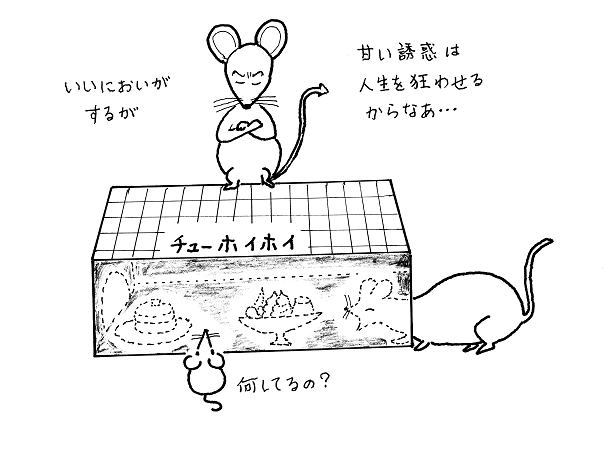 いいにおいが
するが
甘い誘惑は
人生を狂わせる
からなあ…
チューホイホイ
何してるの?